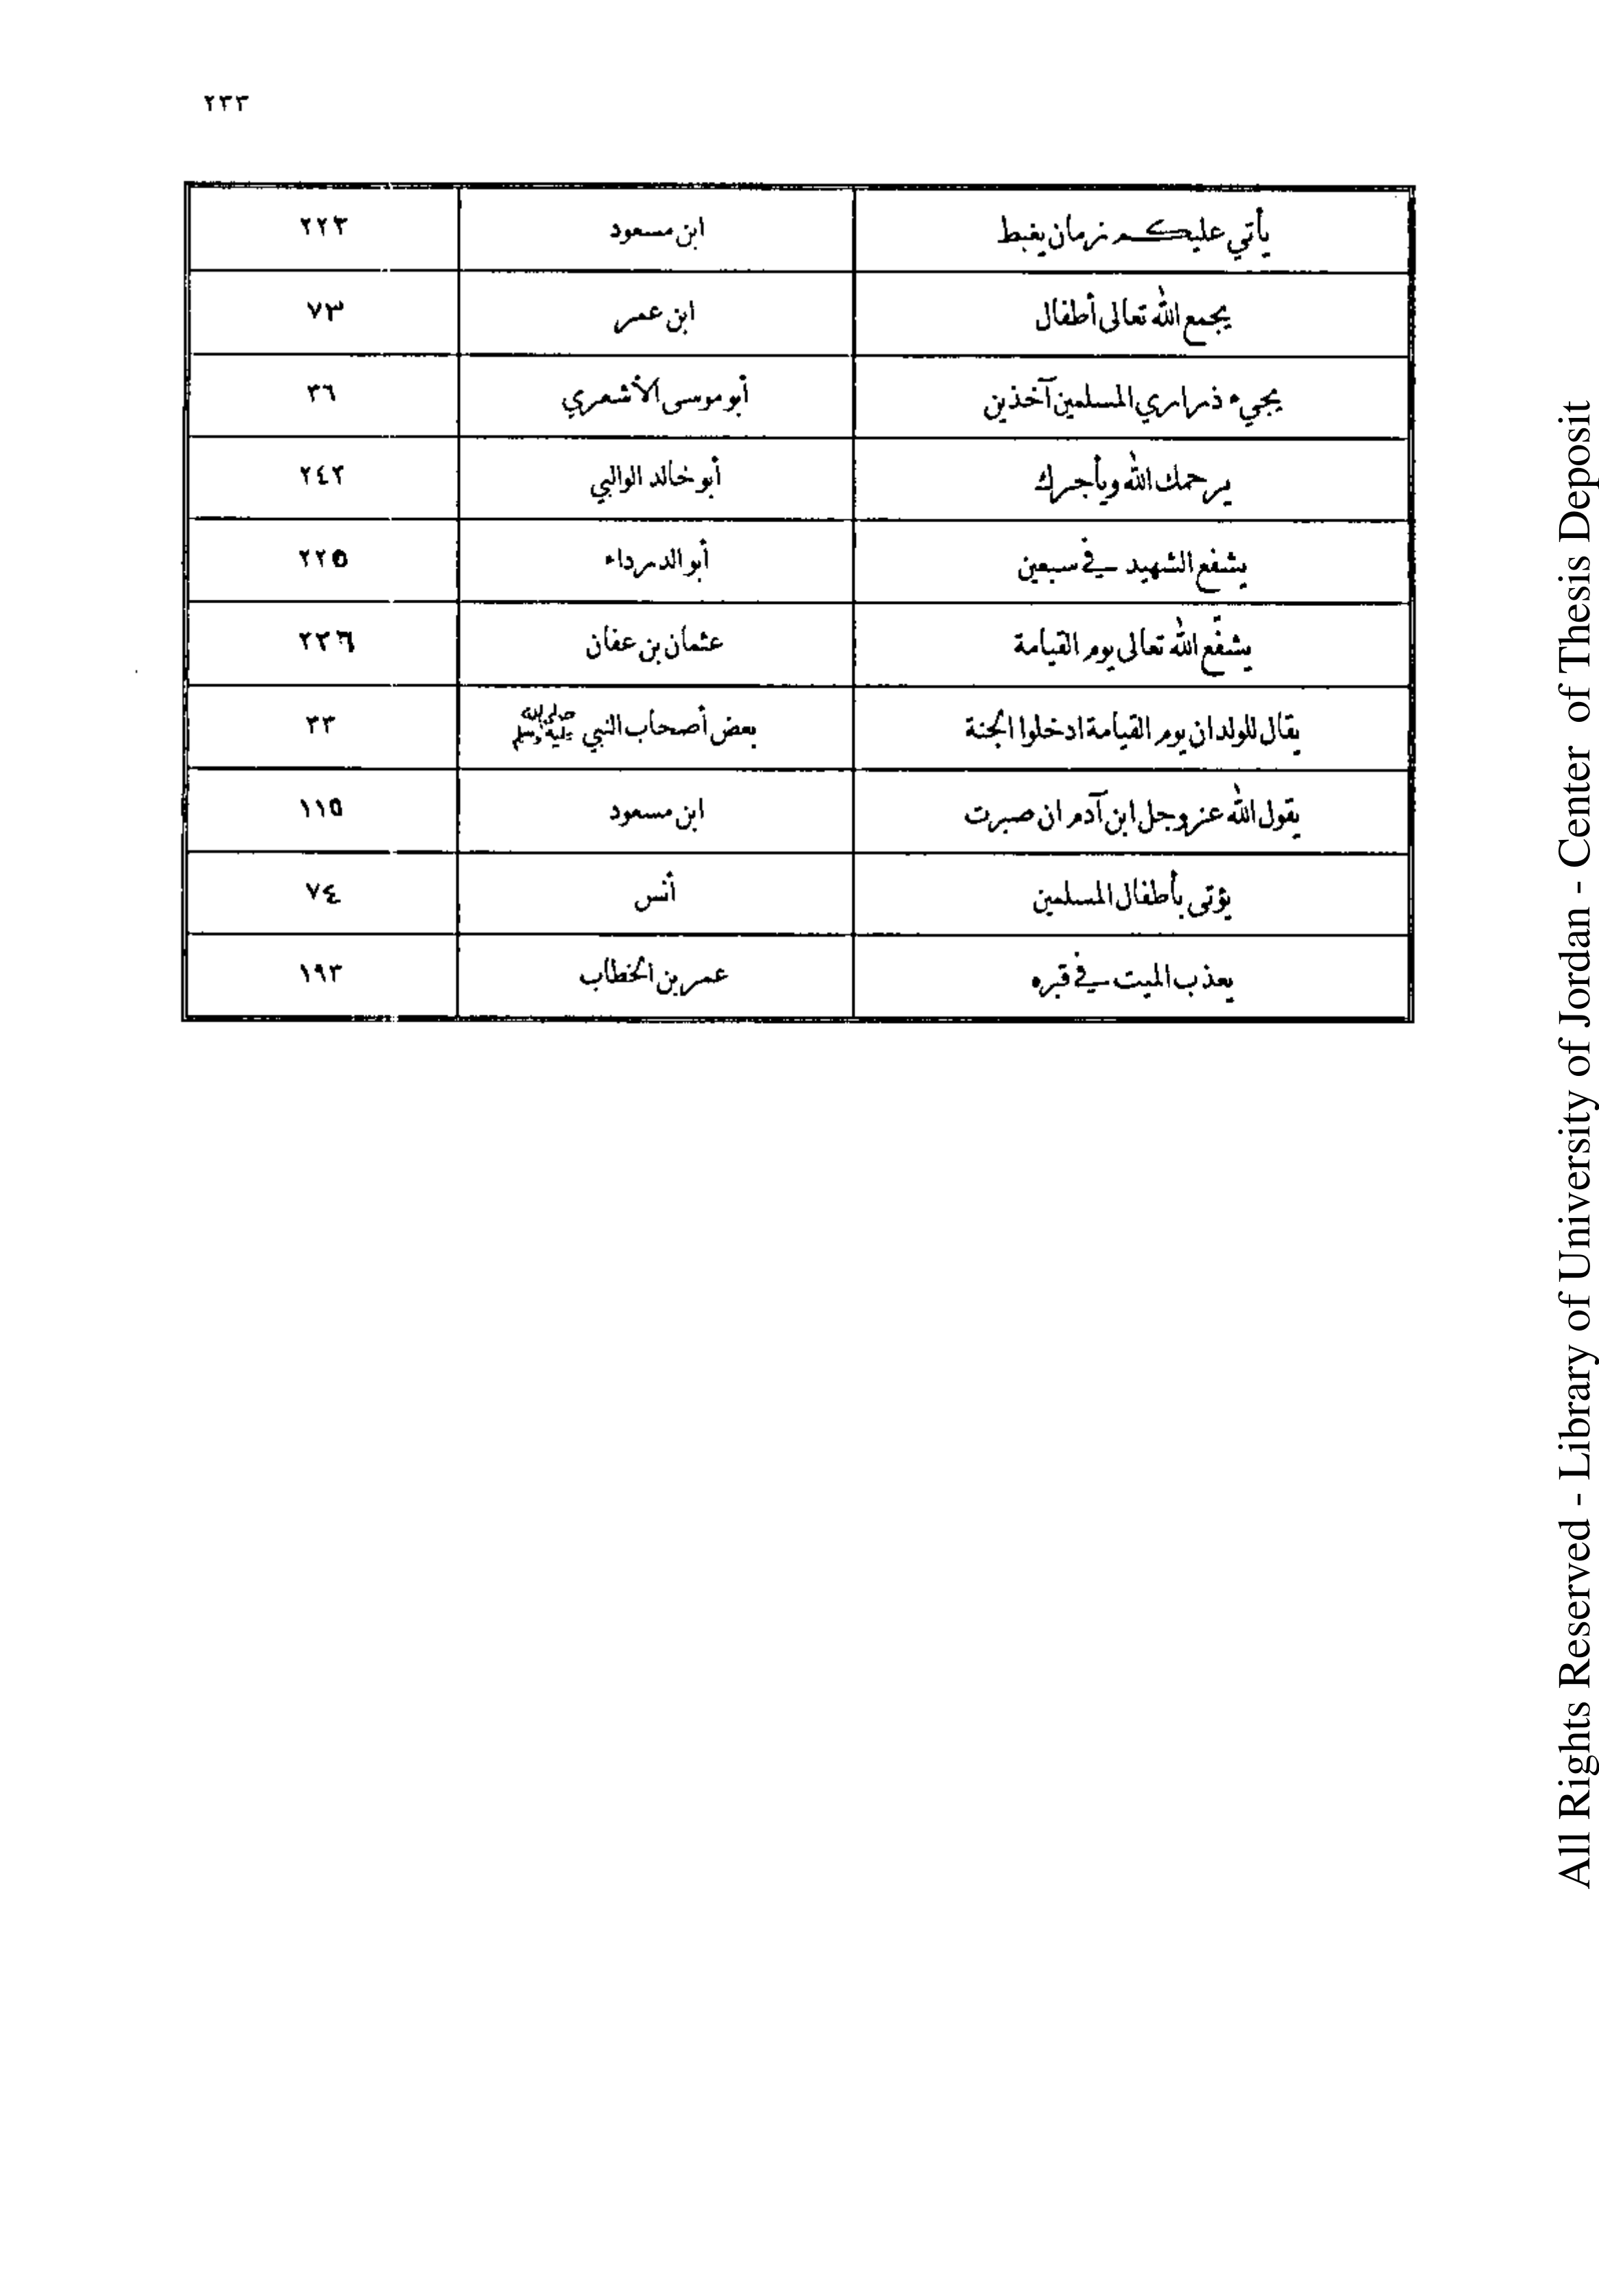 ٢٣٣
يأتي عليكم زمان يغبط ابن مسعود ٢٢٣
يجمع الله تعالى أطفال ابن عمر ٧٣
يجيء ذراري المسلمين آخذين أبو موسى الأشعري ٣٦
يرحمك الله ويأجرك أبو خالد الوالبي ٢٤٢
يشفع الشهيد في سبعين أبو الدرداء ٢٢٥
يشفّع الله تعالى يوم القيامة عثمان بن عفان ٢٢٦
يقال للولدان يوم القيامة ادخلوا الجنة بعض أصحاب النبي صلى الله عليه وسلم ٣٣
يقول الله عز وجل ابن آدم ان صبرت ابن مسعود ١١٥
يؤتى بأطفال المسلمين أنس ٧٤
يعذب الميت في قبره عمر بن الخطاب ١٩٣
All Rights Reserved - Library of University of Jordan - Center of Thesis Deposit